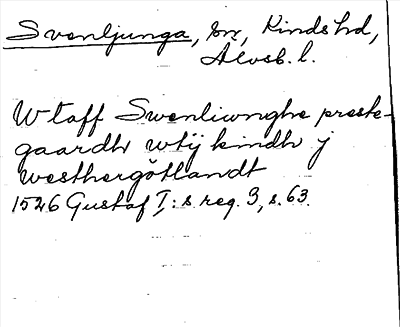 Svenljunga, sn, Kinds hd,
Älvsb. l.
Wtaff Swenliwnghe preste-
gaardh wtij kindh j
westhergötlandt
1526 Gustaf I:s reg. 3, s. 63.